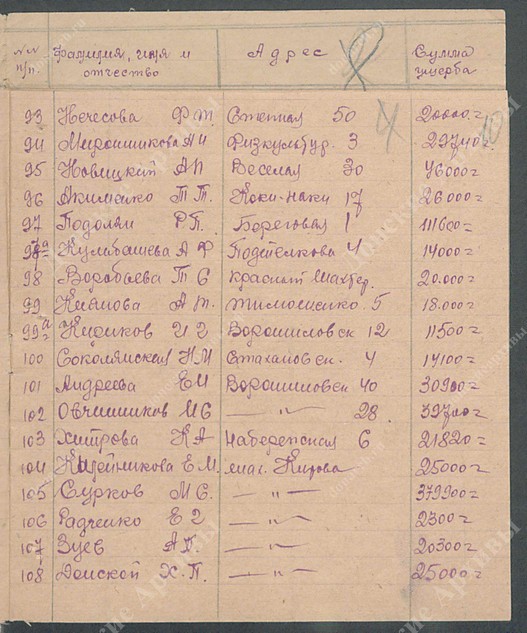 №№ п/п. Фамилия, имя и отчество Адрес Сумма ущерба
93 Нечесова Ф.М. Степная 50 20000=
94 Мирошникова А И Физкультур. 3 29740=
95 Новицкий А П Веселая 30 46000=
96 Акименко Т.Т. 17 26000=
97 Р.П. Береговая 1 111600=
97а Кулибашева А Ф Подтелкова 4 14000=
98 Воробьева Т С Красный Шахтер. 20.000=
99 А.М. Тимошенко 5 18.000=
99а И Г Ворошиловск 12 11500=
100 Соколянская Н М Стахановск. 4 14100=
101 Андреева Е И Ворошиловск 40 30900=
102 Овчинников И С — " — 28 39700=
103 Хитрова К А Набережная 6 21820=
104 Е.М. маг. Кирова 25000=
105 Сурков М С. — " — 379900=
106 Радченко Е Г — " — 2300=
107 Зуев А П. — " — 20300=
108 Донской Х.П. — " — 25000=